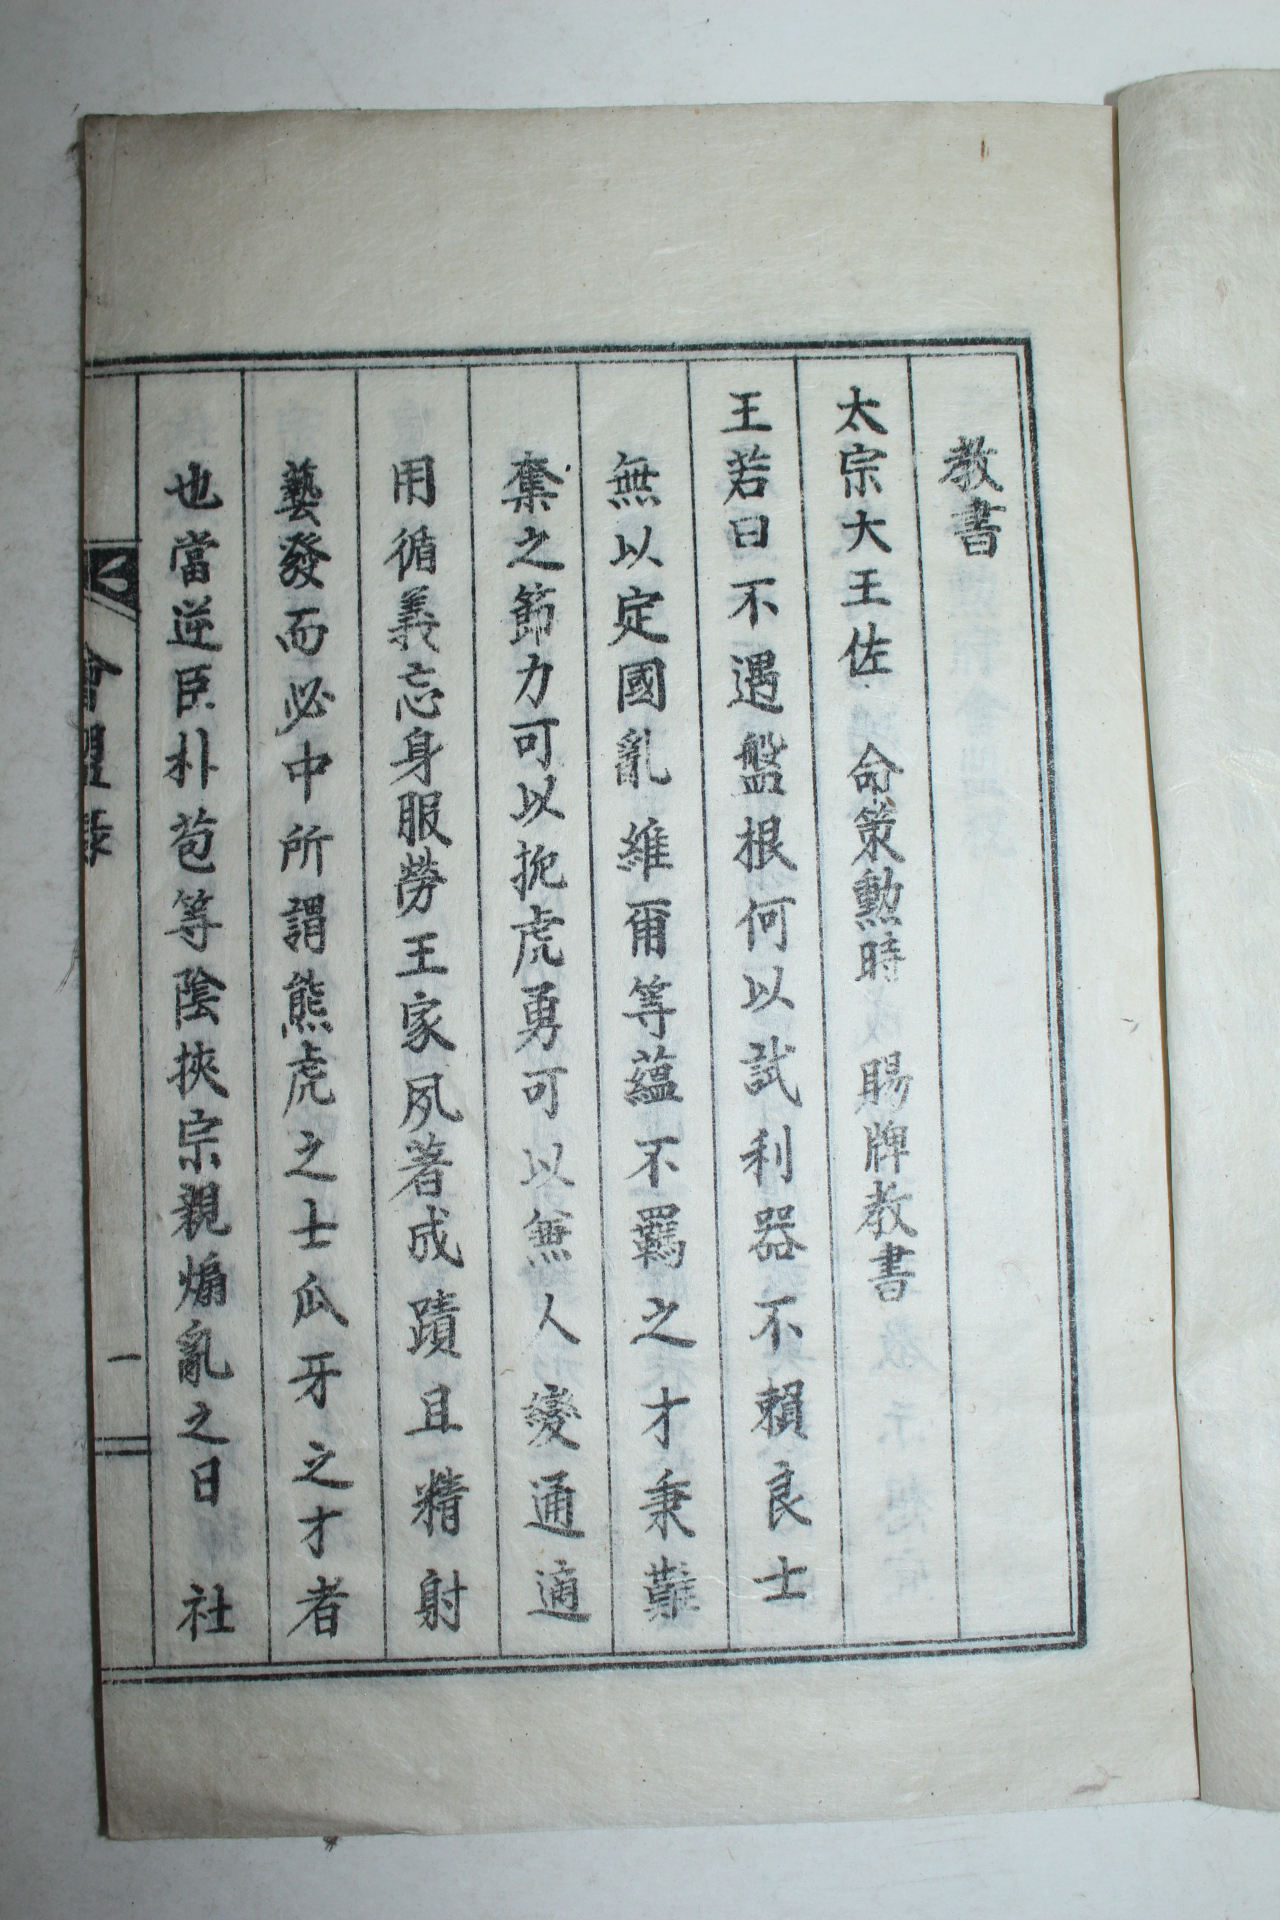 教書
太宗大王佐 命策勲時 賜牌教書
王若曰不遇盤根何以試利器不賴良士
無以定國亂維爾等蘊不羈之才秉難
奪之節力可以扼虎勇可以無人變通適
用循義忘身服勞王家夙著成蹟且精射
藝發而必中所謂熊虎之士瓜牙之才者
也當逆臣朴苞等陰挾宗親煽亂之日 社
會盟錄
一